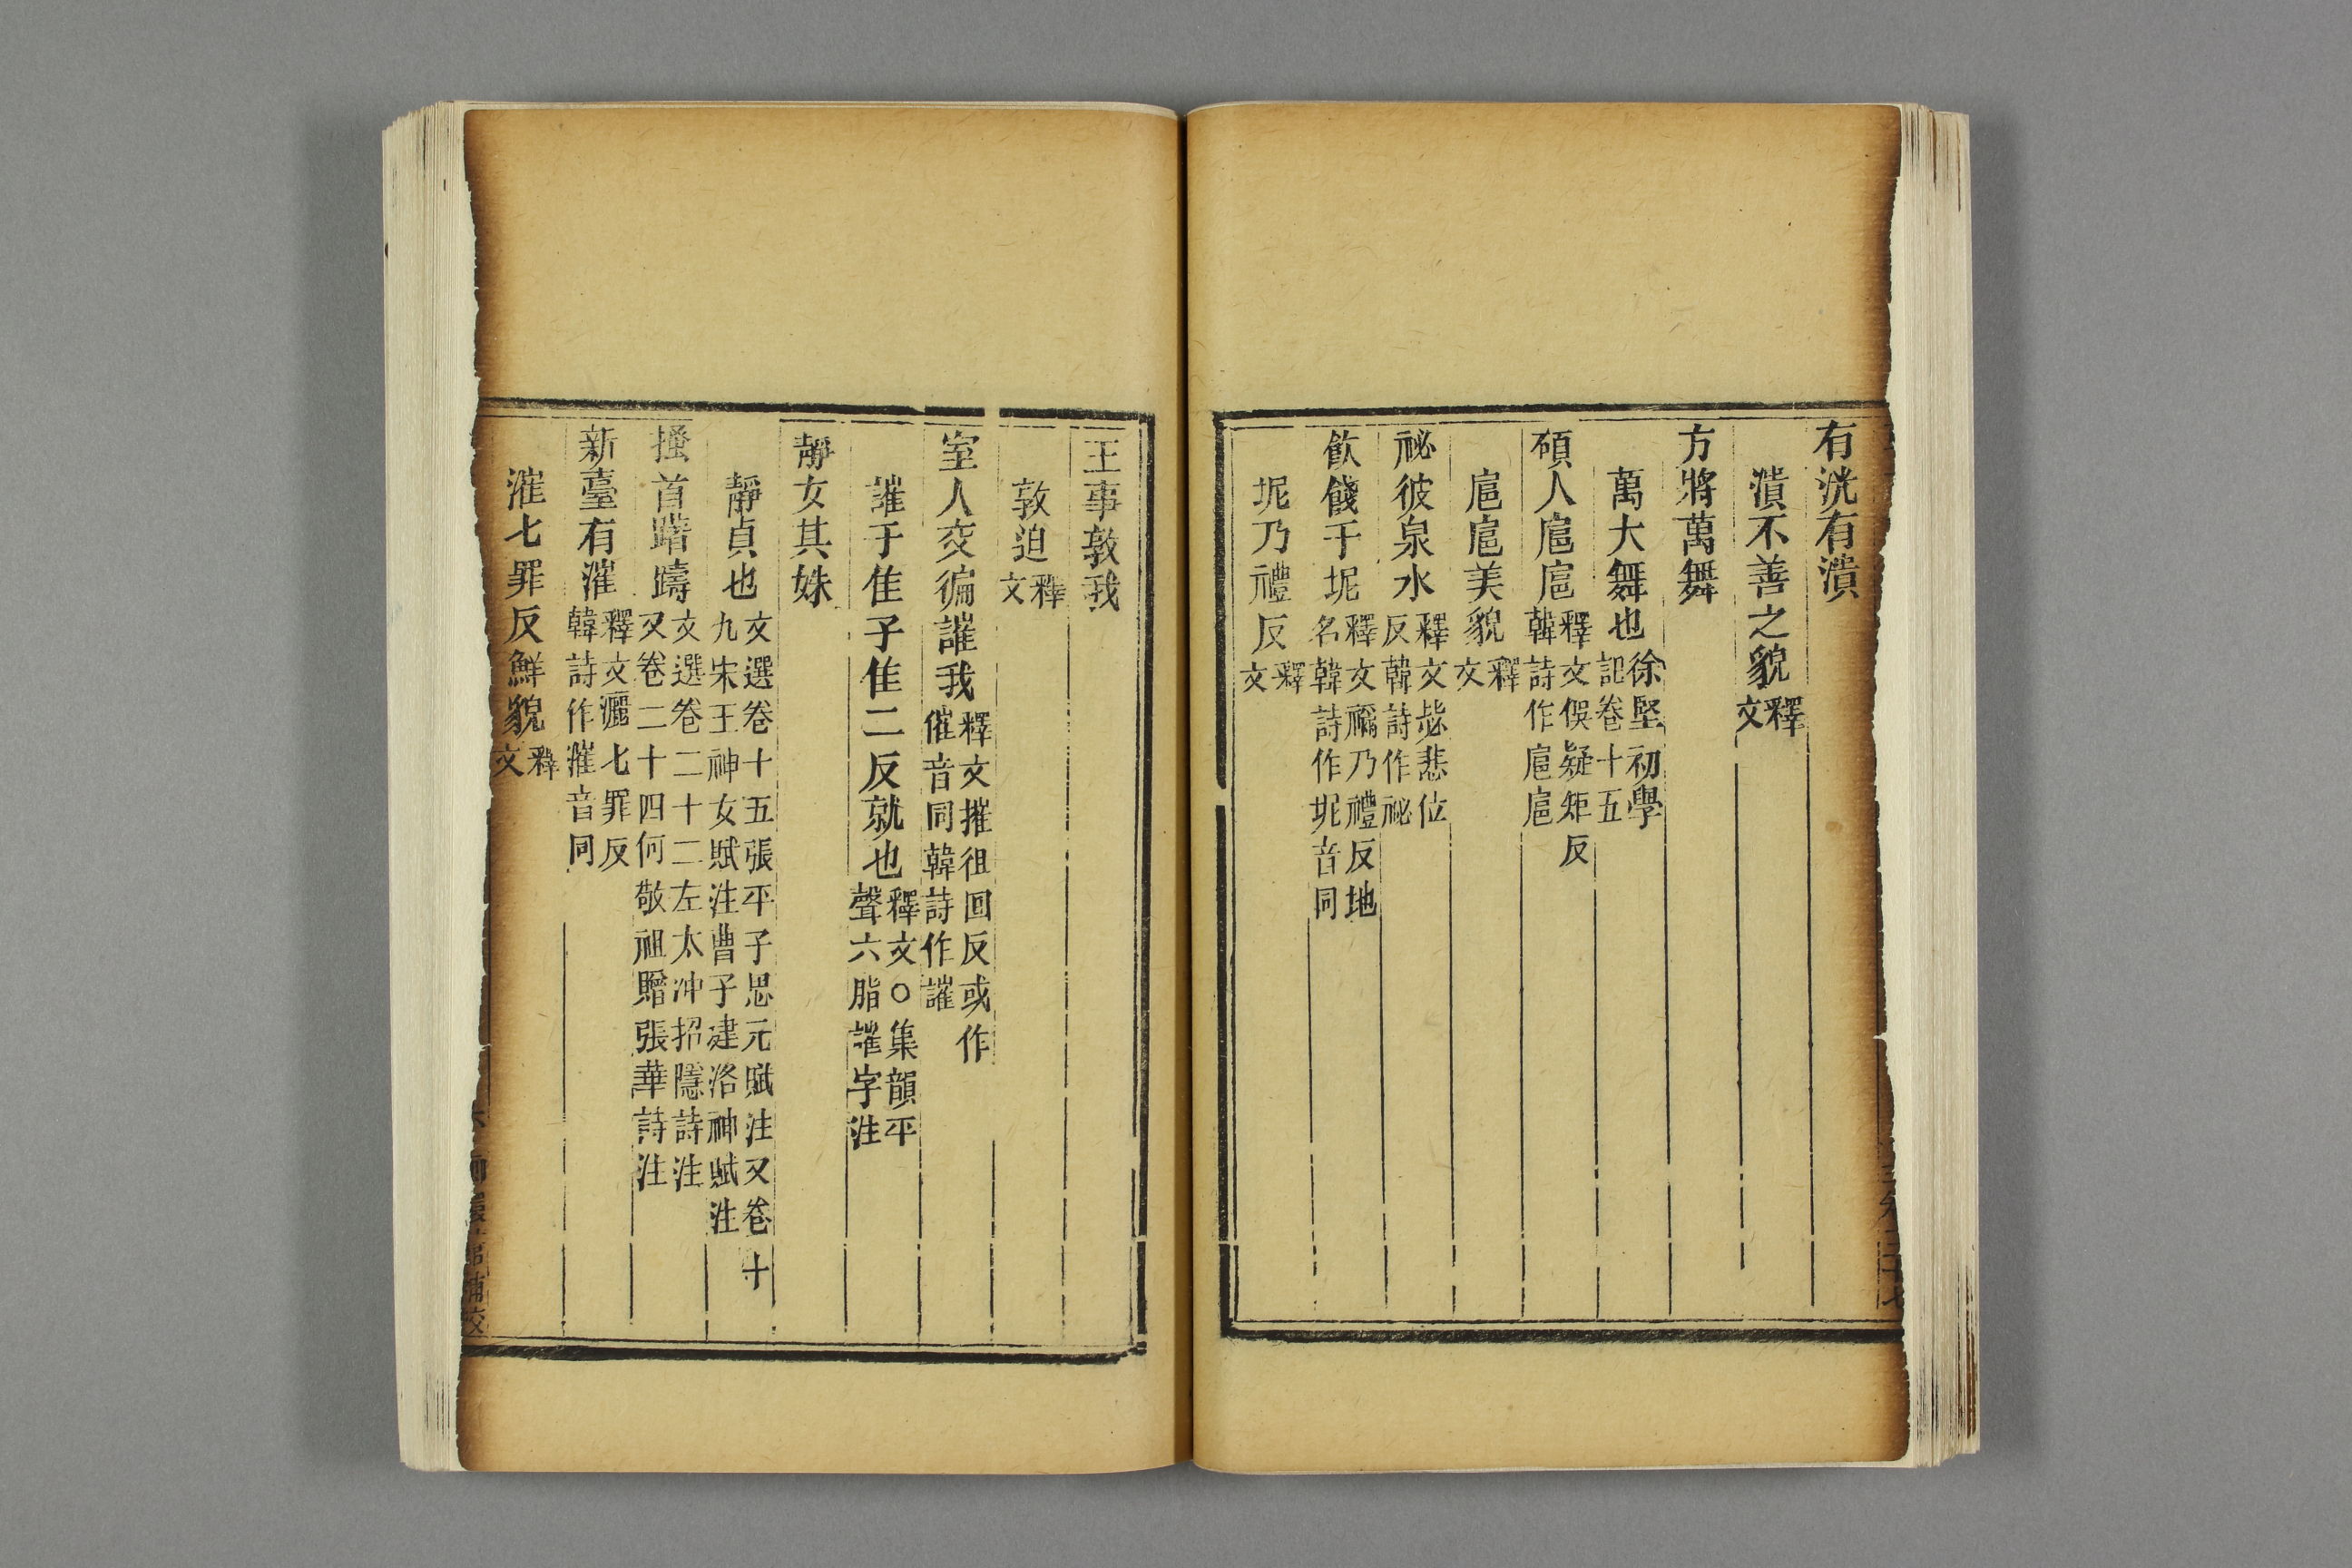 有洸有潰
潰不善之貌釋文
方將萬舞
萬大舞也徐堅初學記卷十五
碩人扈扈釋文俁疑矩反韓詩作扈扈
扈扈美貌釋文
祕彼泉水釋文毖悲位反韓詩作祕
飲餞于坭釋文禰乃禮反地名韓詩作坭音同
坭乃禮反釋文
王事敦我
敦迫釋文
室人交徧誰我釋文摧徂回反或作催音同韓詩作讙
讙于隹子隹二反就也釋文○集韻平聲六脂讙字注
靜女其姝
靜貞也文選卷十五張平子思元賦注又卷十九宋王神女賦注曹子建洛神賦注
搔首躊躇文選卷二十二左太沖招隱詩注又卷二十四何敬祖贈張華詩注
新臺有漼釋文灑七罪反韓詩作漼音同
漼七罪反鮮貌釋文